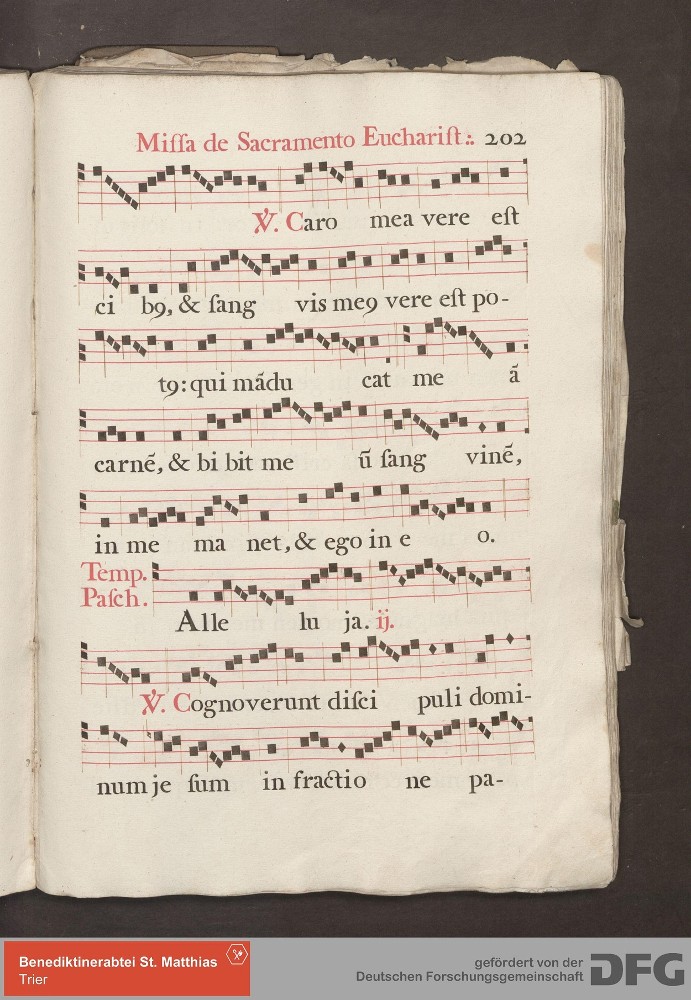 Miſſa de Sacramento Euchariſt:. 202
℣. Caro mea vere eſt
ci b9, & ſang vis me9 vere eſt po-
t9: qui mãdu cat me ã
carnẽ, & bi bit me ũ ſang vinẽ,
in me ma net, & ego in e o.
Temp. Paſch. Alle lu ja. ij.
℣. Cognoverunt diſci puli domi-
num je ſum in fractio ne pa-
Benediktinerabtei St. Matthias
Trier
gefördert von der
Deutschen Forschungsgemeinschaft DFG